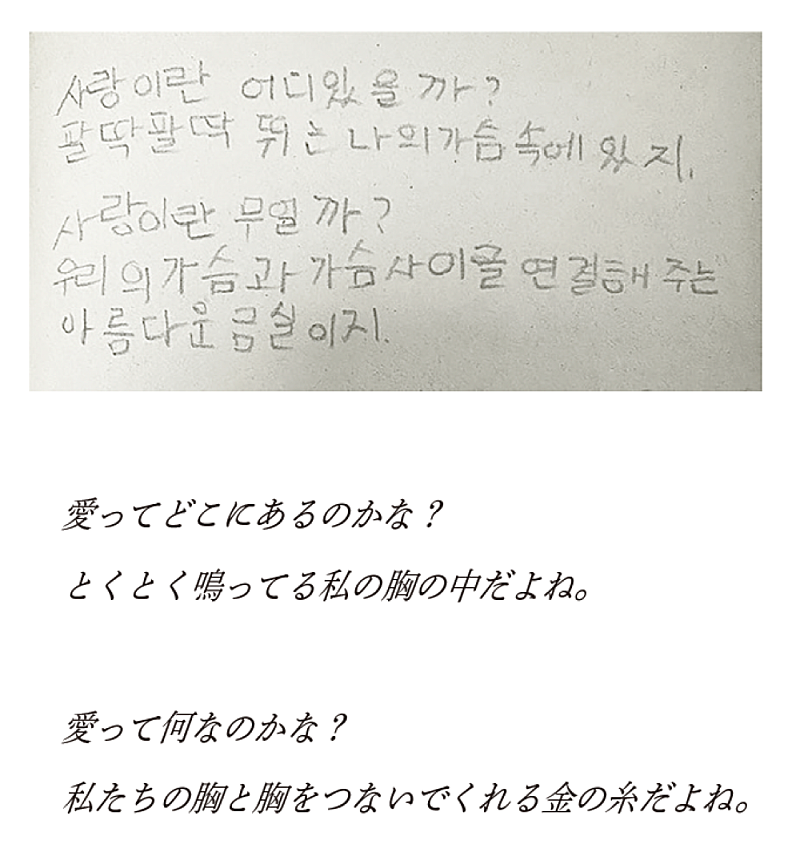 사랑이란 어디있을까?
팔딱팔딱 뛰는 나의가슴속에 있지.
사랑이란 무얼까?
우리의가슴과 가슴사이글 연결해주는
아름다운 금실이지.
愛ってどこにあるのかな？
とくとく鳴ってる私の胸の中だよね。
愛って何なのかな？
私たちの胸と胸をつないでくれる金の糸だよね。